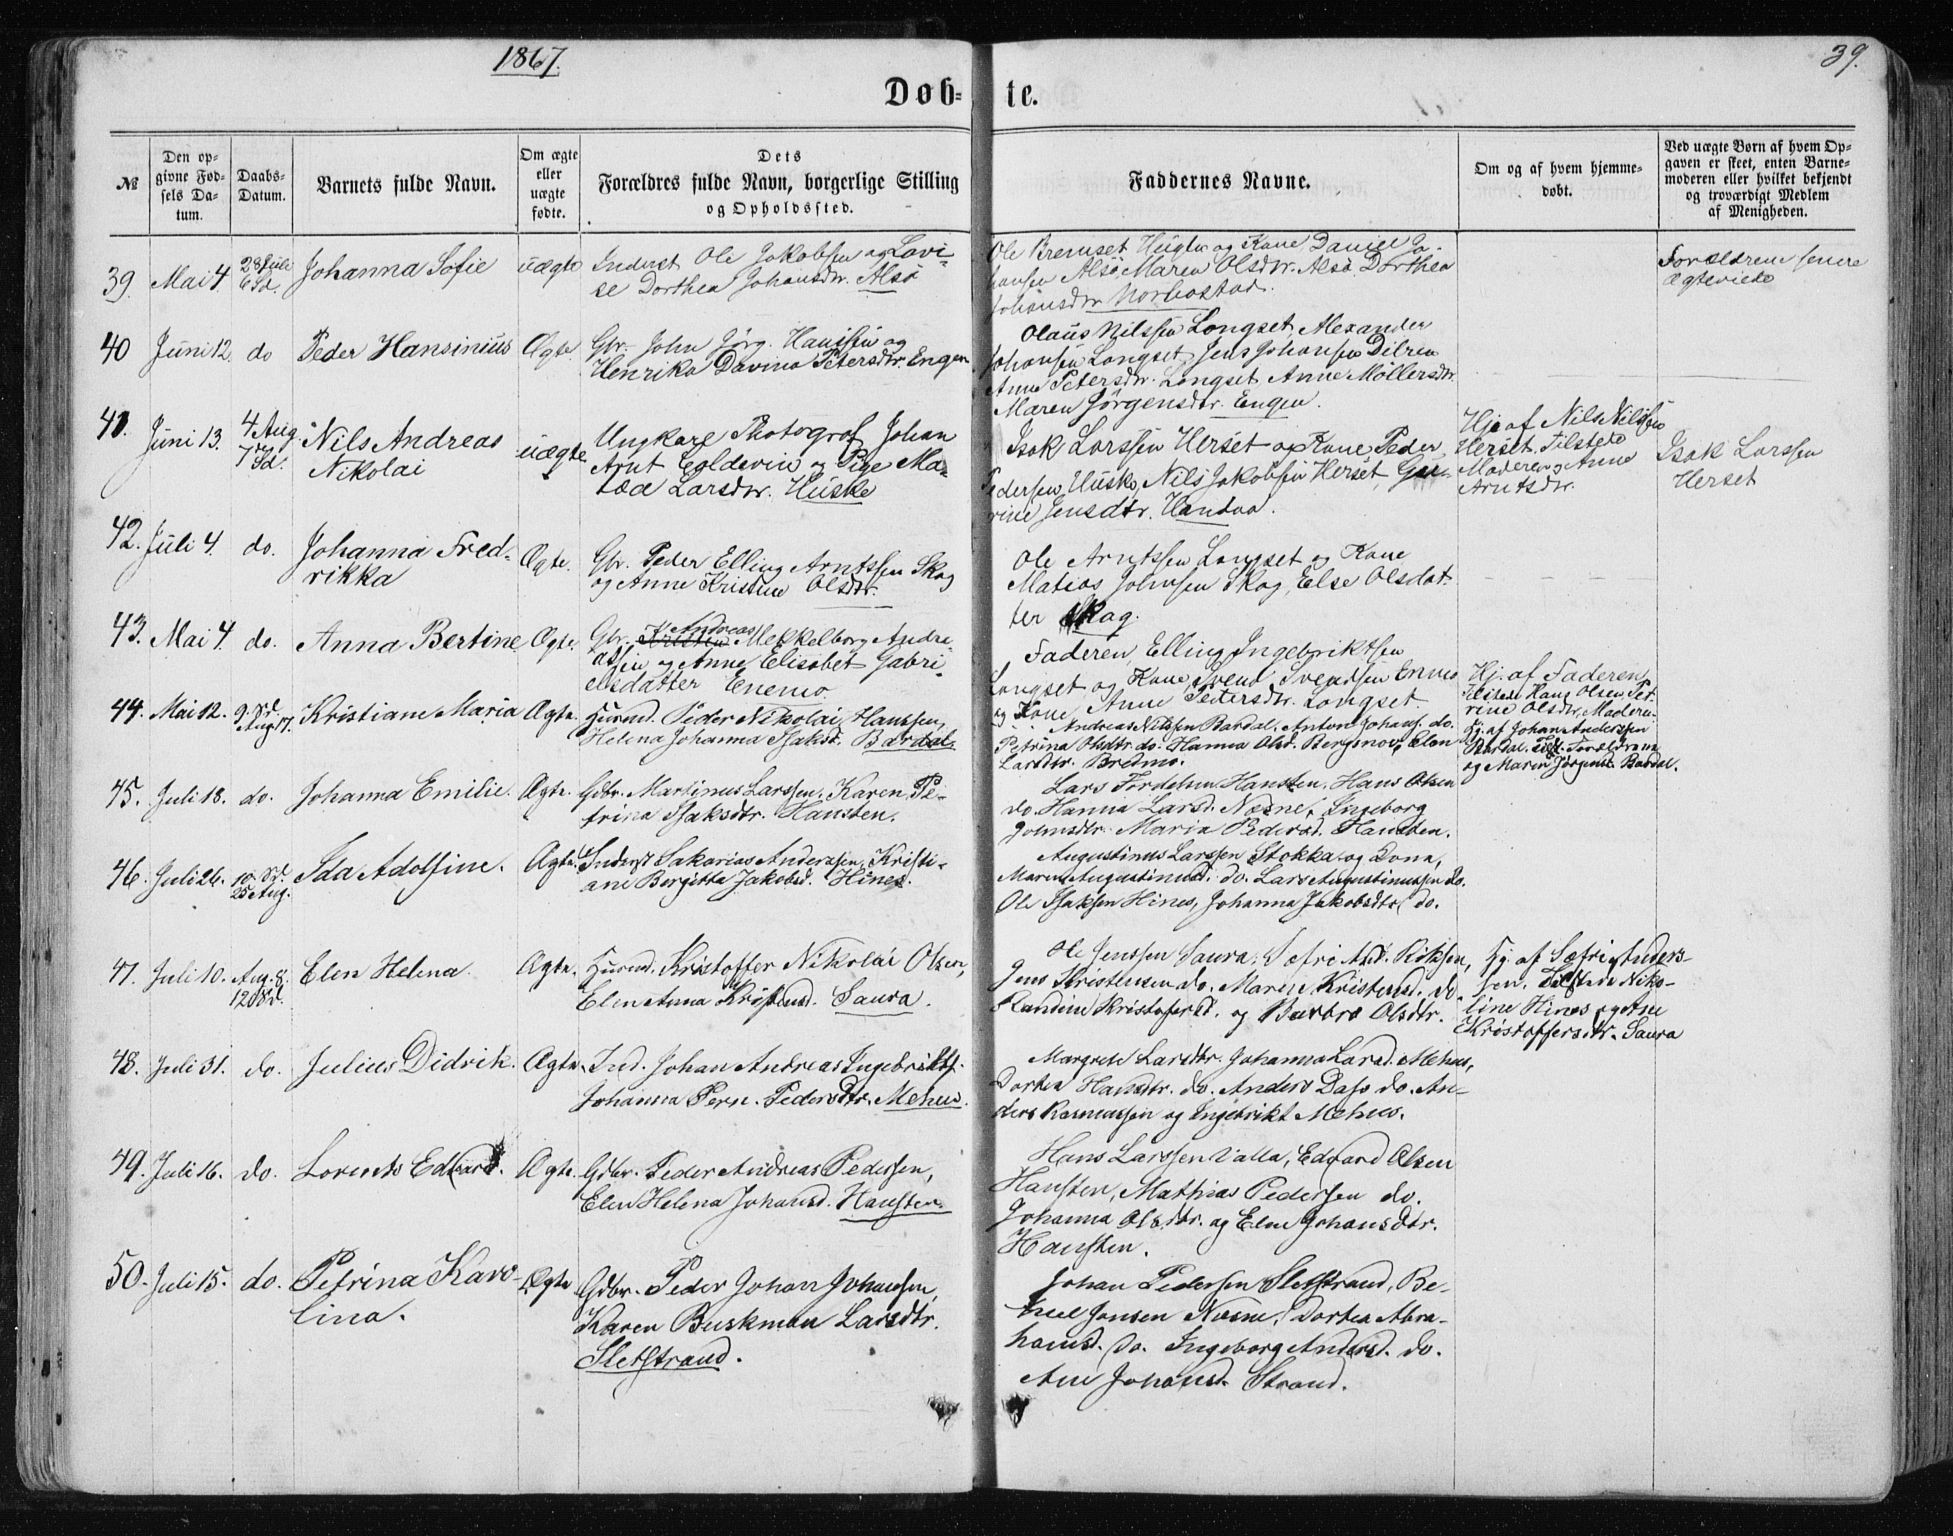 1867.
39.
Døb-
te.
№
Den op-
givne Fød-
sels Da-
tum.
Daabs-
Datum.
Barnets fulde Navn.
Om ægte
eller
uægte
fødte.
Dets
Forældres fulde Navn, borgerlige Stilling
og Opholdssted.
Faddernes Navne.
Om og af hvem hjemme-
døbt.
Ved uægte Børn af hvem Op-
gaven er skeet, enten Barne-
moderen eller hvilket bekjendt
og troværdigt Medlem
af Menigheden.
39.
Mai 4.
28 Juli
6 Sd.
Johanna Sofie
uægte
Inderst Ole Jakobsen og Lovi-
se Dorthea Johansdtr. Alsø
Ole Bremset Hugle og Kone Daniel Jo-
hansen Alsø Maren Olsdtr. Alsø, Dorthea
Johansdtr
Forældrene senere
Ægteviede
40
Juni 12.
do
Peder Hansinius
Ægte
Gbr. John Jørg. Hansen og
Henrika Davina Petersdtr. Engen
Olaus Nilssen Longset, Alexander
Johansen Longset, Jens Johansen
Anne Petersdtr. Longset, Anne Møllersdtr.
Maren Jørgensdtr. Engen.
41.
Juni 13.
4 Aug.
7 Sd.
Nils Andreas
Nikolai
uægte
Ungkare Photograf Johan
Arnt Coldevin og Pige Ma-
tea Larsdtr. Huske
Isak Larssen Herset og Kone, Peder
Pedersen Huske, Nils Jakobsen Herset,
rine Jensdtr. Handaa.
Hj. af Nils Nilssen
Herset. Tilstede
Moderen og Anne
Arntsdtr.
Isak Larssen
Herset
42.
Juli 4.
do.
Johanna Fred-
rikka
Ægte.
Gbr. Peder Elling Arntssen Skog
og Anne Kristine Olsdtr.
Ole Arntssen Longset og Kone
Matias Johnsen Skog, Else Olsdat-
ter Skag.
43.
Mai 4.
do.
Anna Bertine
Ægte.
Gbr. Andreas Mekkelborg Andre-
assen og Anne Elisabet Gabri-
elsdatter Enemo
Faderen, Elling Ingebriktsen
Longset og Kone, Svend Svendsen Ennes
og Kone, Anne Petersdtr. Longset.
Hj. af Faderen
Tilstede Hans Olsen, Pet
rine Olsdtr, Moderen.
44.
Mai 12.
9. Sd.
Aug 17.
Kristiane Maria
Ægte.
Husmd. Peder Nikolai Hanssen,
Helena Johanna Isaksd. Bardal.
Andreas Nilssen Bardal, Anton Johans. do.
Petrina Olsdtr. do. Hanna Olsd. Bergsnov, Elen
Larsdtr. Bretmo.
Hj. af Johan Anderssen
Bardal. Tilst. Forældrene
og Maren Jørgensd. Bardal.
45.
Juli 18.
do.
Johanna Emilie.
Ægte.
Gdbr. Martinus Larssen, Karen Pe-
trina Isaksdtr. Hansten.
Lars Tordelsen Hansten, Hans Olsen
do. Hanna Larsd. Nesne, Ingeborg
Johnsdtr. Maria Pedersd. Hansten.
46.
Juli 26.
10. Sd.
25 Aug.
Ida Adolfine.
Ægte.
Inderst Sakarias Anderssen, Kristi-
ane Bergitta Jakobsd. Hines.
Augustinus Larssen Stokka og Kona,
Maren Augustinusd. do. Lars Augustinussen do.
Ole Isaksen Hines, Johanna Jakobsdtr. do.
47.
Juli 10.
Aug. 8.
12 Sd.
Elen Helena.
Ægte.
Husmd. Kristoffer Nikolai Olsen,
Elen Anna Kristensd. Saura.
Ole Jenssen Saura, Sefri And.
Jens Kristensen do. Maren Kristensd. do.
Blandine Kristofersd. og Barbro Olsdtr.
Hj. af Sefri Anders-
sen. Tilstede Niko-
line Hines og Ane
Kristoffersdtr. Saura
48.
Juli 31.
do.
Julius Didrik.
Ægte.
Ind. Johan Andreas Ingebriktsf.
Johanna Pern. Pedersdtr. Mehus.
Margrete Larsdtr. Johanna Larsd. Mehus,
Dortea Hansdtr. do. Anders Dass do. An-
ders Rasmussen og Ingebrikt Mehus.
49.
Juli 16.
do.
Lorents Edvard.
Ægte.
Gdbr. Peder Andreas Pedersen,
Elen Helena Johansd. Hansten.
Hans Larssen Valla, Edvard Olsen
Hansten, Mathias Pedersen do.
Johanna Olsdtr. og Elen Johansdtr.
Hansten.
50.
Juli 15.
do.
Petrina Karo-
lina.
Ægte
Gdbr. Peder Johan Johansen,
Karen Buskman Larsdtr.
Sletstrand.
Johan Pedersen Sletstrand, Be-
hil Jensen Nesne, Dortea Abra-
hamsd. do. Ingeborg Andersd. do.
Ane Johansd. Strand.